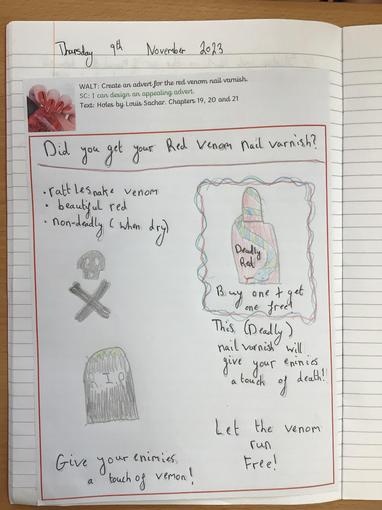 Thursday 9th November 2023
WALT: Create an advert for the red venom nail varnish.
SC: I can design an appealing advert.
Text: Holes by Louis Sachar. Chapters 19, 20 and 21
Did you get your Red Venom nail varnish?
• rattlesnake venom
• beautiful red
• non-deadly (when dry)
Deadly
Red
Buy one + get
one free!
This (Deadly)
nail varnish will
give your eninies
a touch of death!
R.I.P
Let the venom
run
Free!
Give your enimies
a touch of vemon!